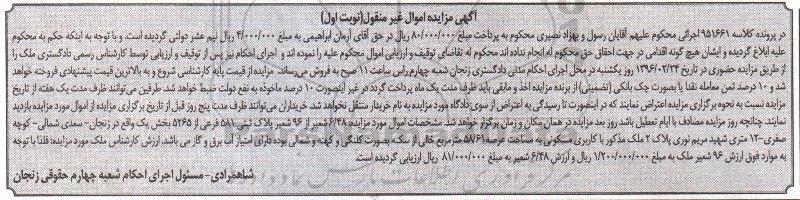 آگهی مزایده اموال غیر منقول(نوبت اول)
در پرونده کلاسه ۹۵۱۶۶۱ اجرائی محکوم علیهم آقایان رسول و بهزاد نصیری محکوم به پرداخت مبلغ ۸۰/۰۰۰/۰۰۰ ریال در حق آقای آرمان ابراهیمی به مبلغ ۴/۰۰۰/۰۰۰ ریال نیم عشر دولتی گردیده است. و با توجه به اینکه حکم به محکوم
علیه ابلاغ گردیده و ایشان هیچ گونه اقدامی در جهت احقاق حق محکوم له انجام نداده اند محکوم له تقاضای توقیف و ارزیابی اموال محکوم علیه را نموده اند و اجرای احکام نیز پس از توقیف و ارزیابی توسط کارشناس رسمی دادگستری ملک را
از طریق مزایده حضوری در تاریخ ۱۳۹۶/۰۲/۲۴ روز یکشنبه در محل اجرای احکام مدنی دادگستری زنجان شعبه چهارم راس ساعت ۱۱ صبح به فروش می‌رساند. مزایده از قیمت پایه کارشناسی شروع و به بالاترین قیمت پیشنهادی فروخته خواهد
شد و ۱۰ درصد ثمن معامله نقدا یا بصورت چک بانکی (تضمینی) از برنده مزایده اخذ و مابقی باید ظرف مدت یک ماه پرداخت گردد در غیر اینصورت ۱۰ درصد ماخوذه به نفع دولت ضبط خواهد شد. طرفین می‌توانند ظرف مدت یک هفته از تاریخ
مزایده نسبت به نحوه برگزاری مزایده اعتراض نمایند که در اینصورت تا رسیدگی به اعتراض از سوی دادگاه مورد مزایده به نام خریدار منتقل نخواهد شد. خریداران می‌توانند ظرف مدت پنج روز قبل از تاریخ برگزاری مزایده از اموال مورد مزایده بازدید
نمایند. چنانچه روز مزایده مصادف با ایام تعطیل باشد روز بعد مزایده در همان مکان و زمان برگزار خواهد شد. مشخصات اموال مورد مزایده: ۶/۴۸ شعیر از ۹۶ شعیر پلاک ثبتی ۵۸۱ فرعی از ۵۲۶۵ بخش یک واقع در زنجان- سعدی شمالی- کوچه
صفری-۱۲ متری شهید مریم نوری پلاک ۲ ملک مذکور با کاربری مسکونی به مساحت عرصه ۵۷/۶۱ مترمربع خالی از سکنه بصورت کلنگی و کهنه و شمالی بوده دارای امتیاز آب برق و گاز می باشد. ارزش کارشناس ملک مورد مزایده: فلذا با توجه
به موارد فوق ارزش ۹۶ شعیر ملک به مبلغ ۱/۲۰۰/۰۰۰/۰۰۰ ریال و ارزش ۶/۴۸ شعیر به مبلغ ۸۱/۰۰۰/۰۰۰ ریال ارزیابی گردیده است.
شاهمرادی- مسئول اجرای احکام شعبه چهارم حقوقی زنجان